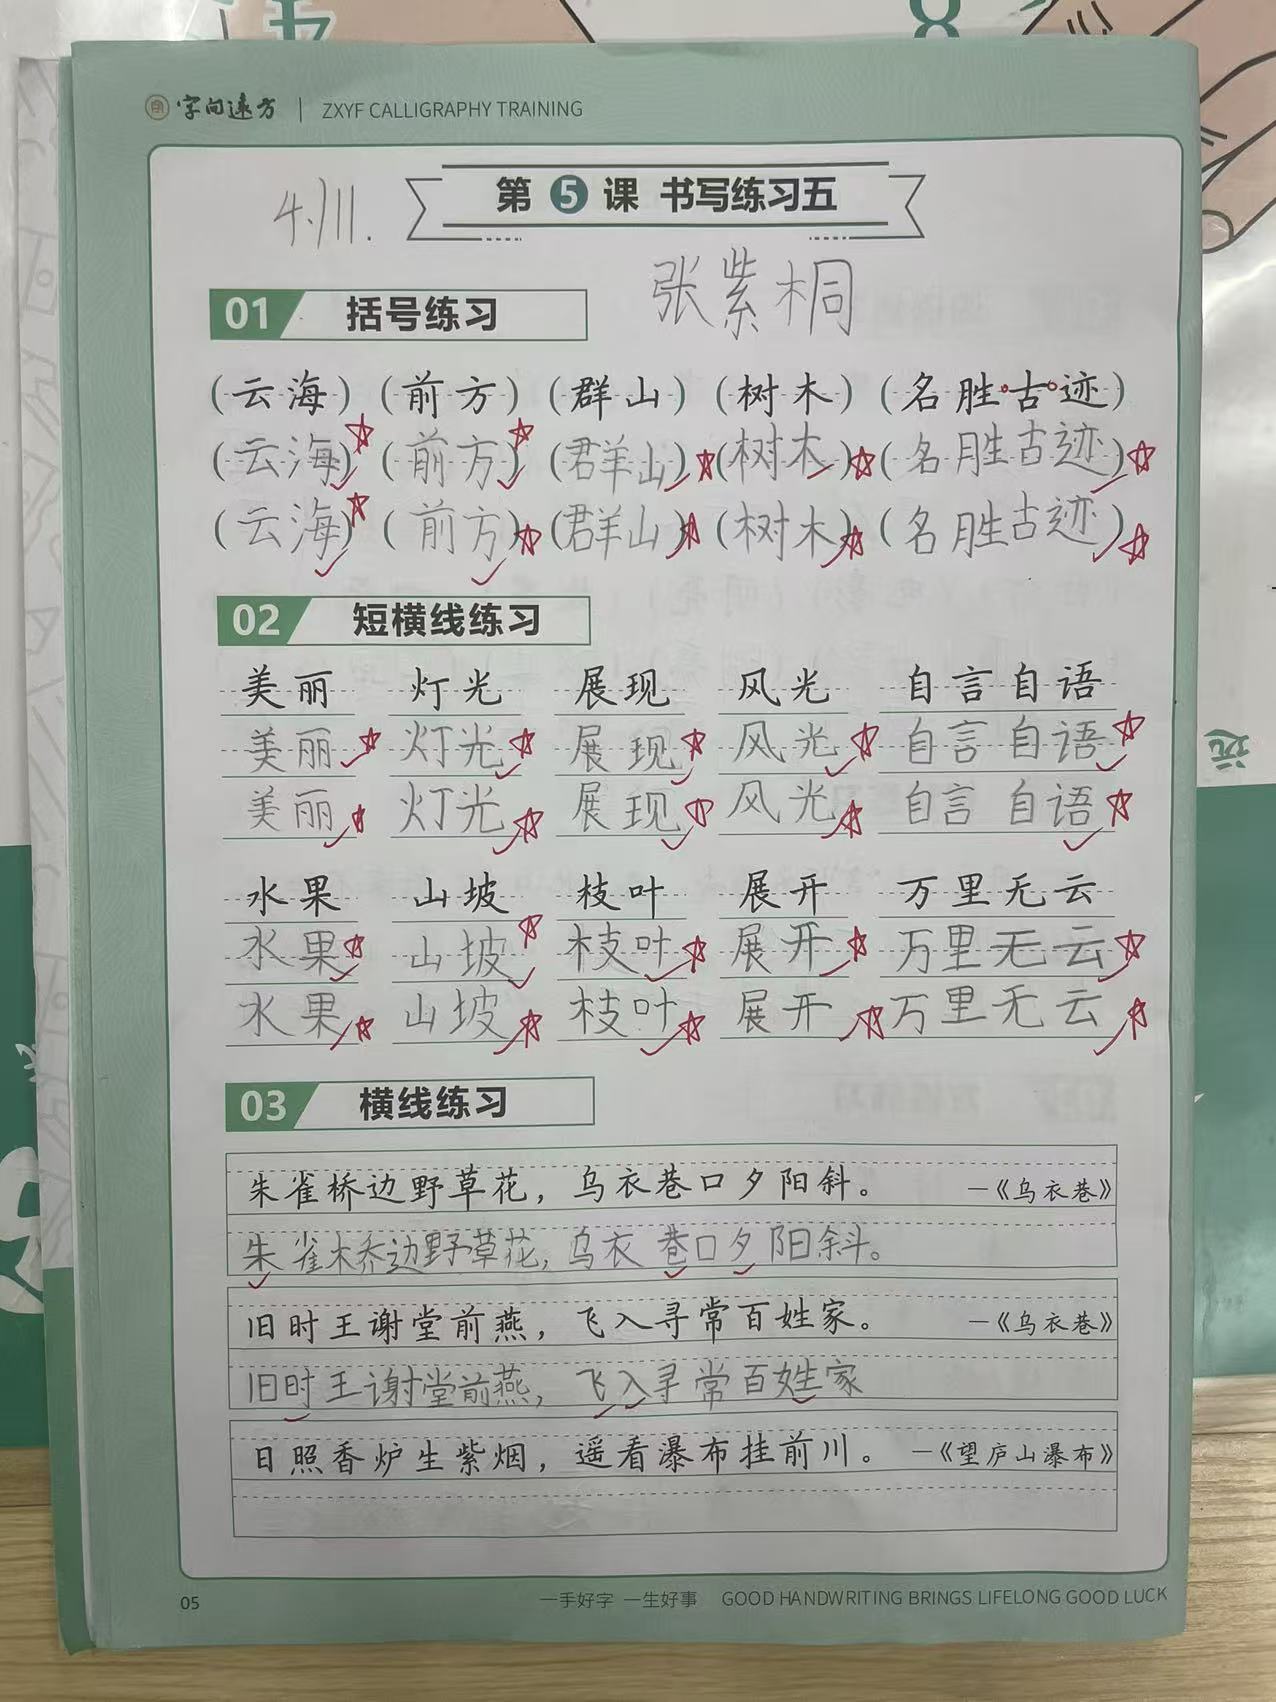 字向远方 | ZXYF CALLIGRAPHY TRAINING
第5课 书写练习五
4.11.
张紫桐
01 括号练习
(云海) (前方) (群山) (树木) (名胜古迹)
(云海) (前方) (群山) (树木) (名胜古迹)
(云海) (前方) (群山) (树木) (名胜古迹)
02 短横线练习
美丽 灯光 展现 风光 自言自语
美丽 灯光 展现 风光 自言自语
美丽 灯光 展现 风光 自言自语
水果 山坡 枝叶 展开 万里无云
水果 山坡 枝叶 展开 万里无云
水果 山坡 枝叶 展开 万里无云
03 横线练习
朱雀桥边野草花，乌衣巷口夕阳斜。 —《乌衣巷》
朱雀桥边野草花，乌衣巷口夕阳斜。
旧时王谢堂前燕，飞入寻常百姓家。 —《乌衣巷》
旧时王谢堂前燕，飞入寻常百姓家
日照香炉生紫烟，遥看瀑布挂前川。 —《望庐山瀑布》
05 一手好字 一生好事 GOOD HANDWRITING BRINGS LIFELONG GOOD LUCK